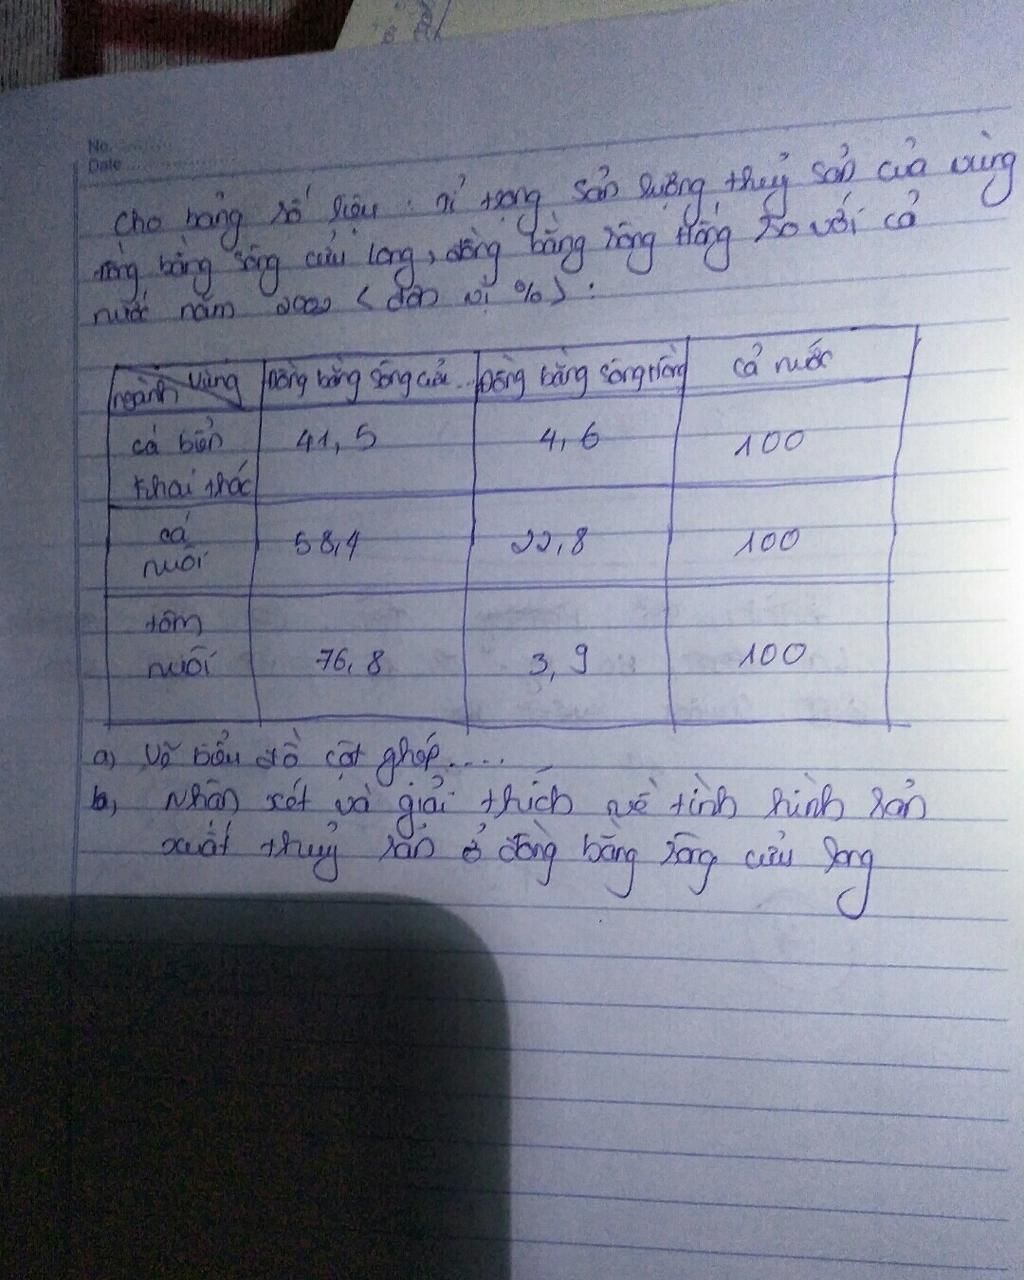 No.
Date
Cho bảng số liệu : tỉ trọng sản lượng thuỷ sản của vùng
đồng bằng sông cửu long, đồng bằng sông Hồng so với cả
nước năm 2002 < đơn vị % > :
ngành vùng Đồng bằng sông cửu... Đồng bằng sông Hồng cả nước
cá biển 41,5 4,6 100
khai thác
cá
nuôi 58,4 22,8 100
tôm
nuôi 76,8 3,9 100
a) Vẽ biểu đồ cột ghép.....
b, Nhận xét và giải thích về tình hình sản
xuất thuỷ sản ở đồng bằng sông cửu long